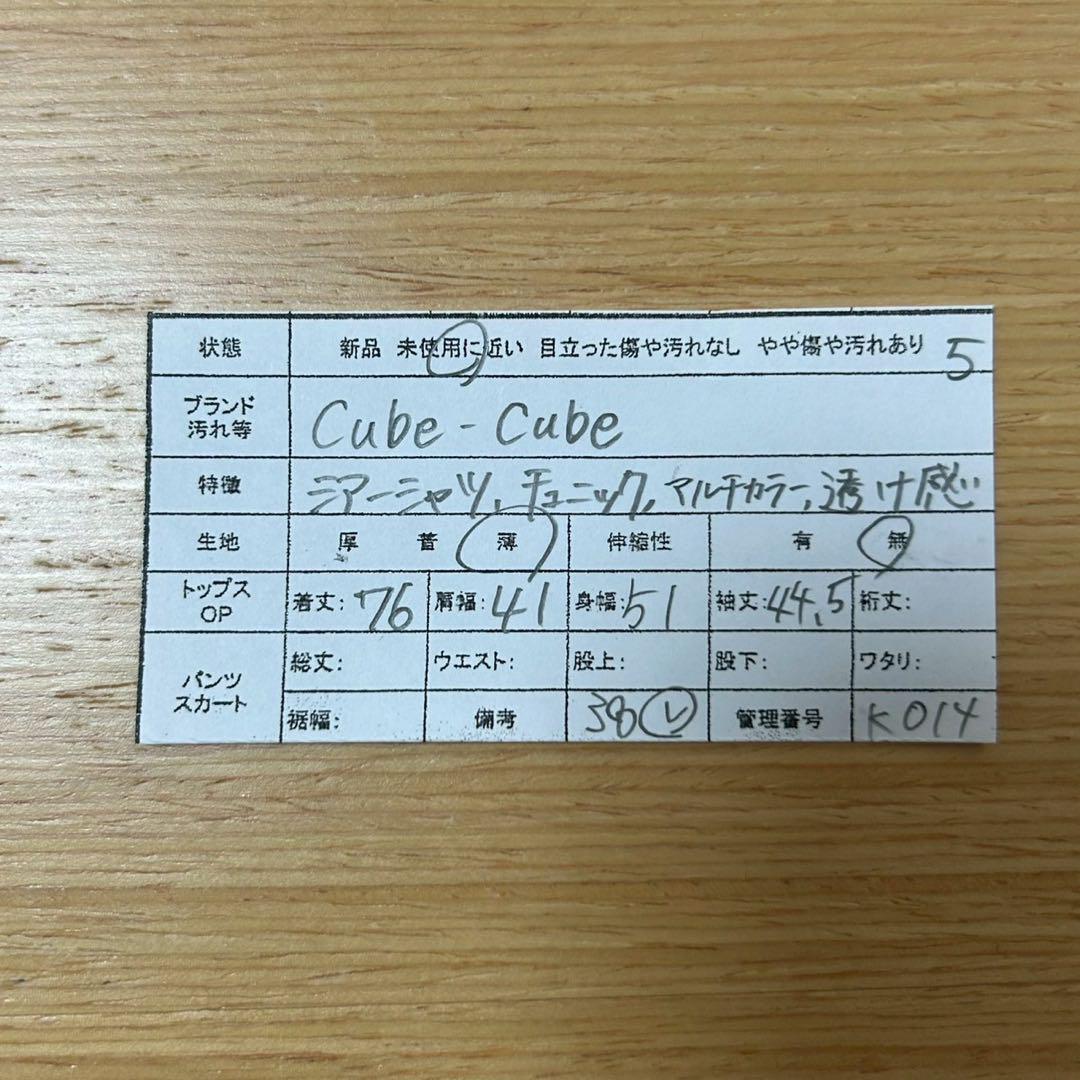 状態 新品 未使用に近い 目立った傷や汚れなし やや傷や汚れあり 5
ブランド 汚れ等 Cube - Cube
特徴 シアーシャツ、チュニック、マルチカラー、透け感
生地 厚 普 薄 伸縮性 有 無
トップス OP 着丈: 76 肩幅: 41 身幅: 51 袖丈: 44.5 裄丈:
パンツ スカート 総丈: ウエスト: 股上: 股下: ワタリ:
裾幅: 備考 38 レ 管理番号 K014